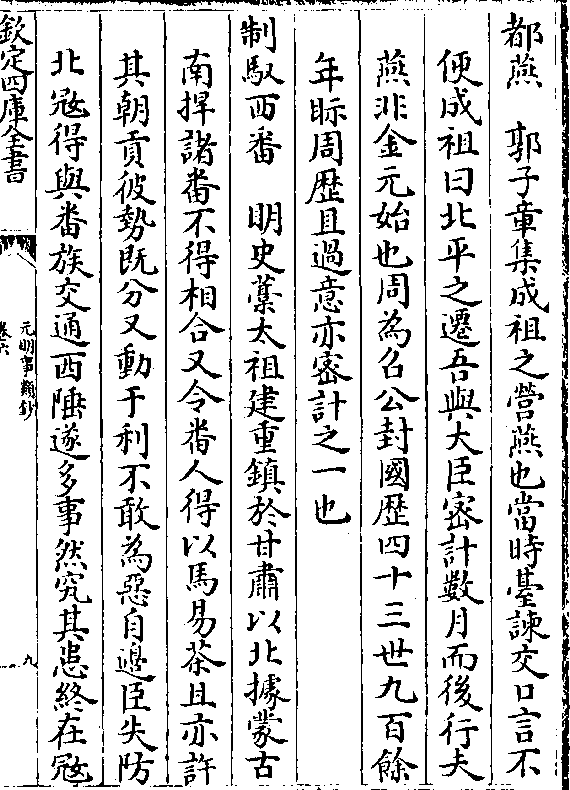 都燕　郭子章集成祖之營燕也當時臺諫交口言不
便成祖曰北平之遷吾與大臣密計數月而後行夫
燕非金元始也周為召公封國歴四十三世九百餘
年眎周歴且過意亦密計之一也
制馭西番　明史藁太祖建重鎮於甘肅以北據蒙古
南捍諸番不得相合又令番人得以馬易茶且亦許
其朝貢彼勢既分又動于利不敢為惡自邉臣失防
北冦得與番族交通西陲遂多事然究其患終在冦
欽定四庫全書
元明事類鈔
卷六
九